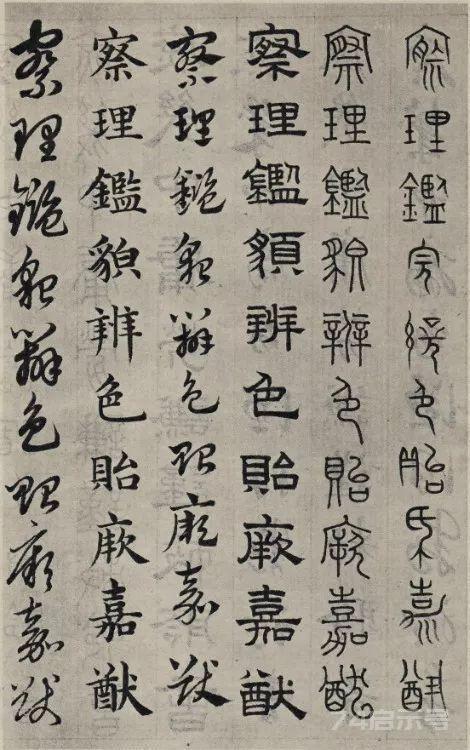 察理鑑皃辨色貽厥嘉猷
察理鑑貌辨色貽厥嘉猷
察理鑑貌辨色貽厥嘉猷
察理鑑貌辨色貽厥嘉猷
察理鑑貌辨色貽厥嘉猷
察理鑑貌辨色貽厥嘉猷
74启示号